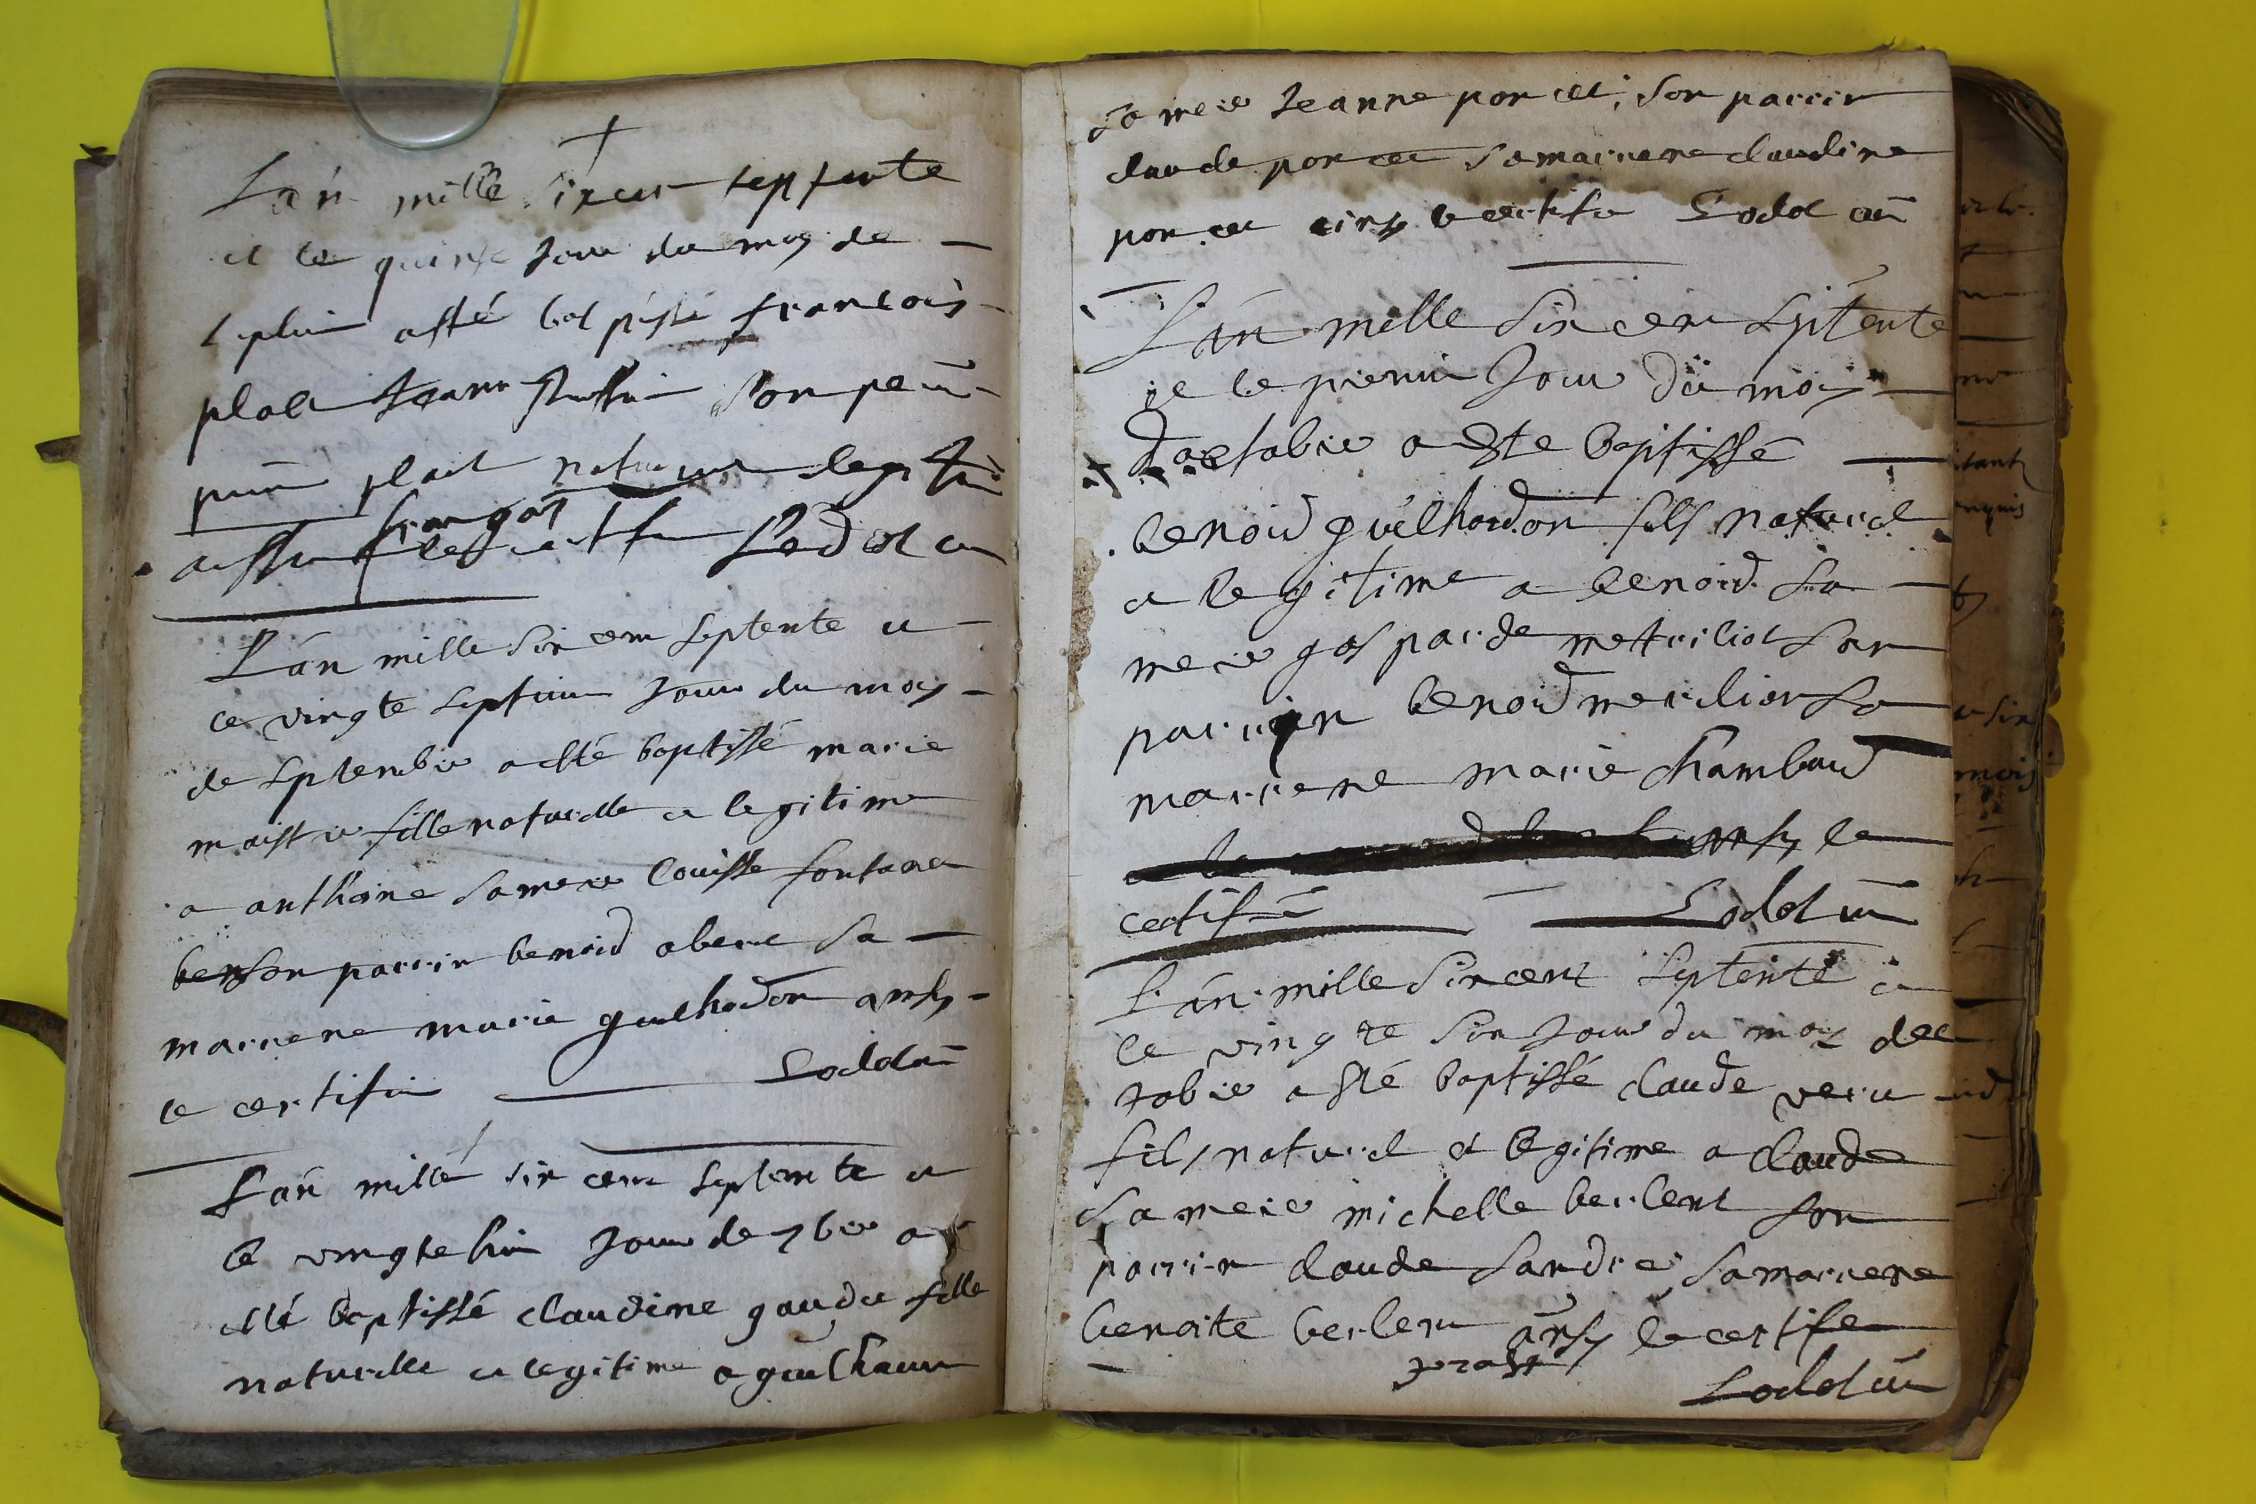 L'an mille sixcent septente
et le quinse Jour du mois de
a esté batpissé francois
plact son
plact naturel
francois
certifie Lodol cu
L'an mille six cent septente et
le vingte septieme Jour du moy
de septembre a esté baptissé marie
maistre fille naturelle et legitime
a anthoine sa mere Louisse fontane
son parrin benoid abere sa
marrene marie guilhodon ainsy
le certifie Lodol cu
L'an mille six cent septente et
le vingte huit Jour de 7bre a
esté baptissé claudine fille
naturelle et legitime a guilhaume
sa mere Jeanne poncet, son parrin
claude poncet sa marrene claudine
poncet ainsy le certifie Lodol cu
L'an mille six cent septente
et le premier Jour du moy
d'octobre a este baptissé
benoid guilhordon fils naturel
et legitime a benoid sa
mere gasparde son
parrein benoid sa
marrene marie chambaud
ainsy le
certifie Lodol cu
L'an mille six cent septente et
le vingte six Jour du moy d'oc
tobre a esté baptissé claude
fils naturel et legitime a claude
sa mere michelle berlent son
parrin claude sandre, sa marrene
benoite berlent ainsy le certifie
Lodol cu